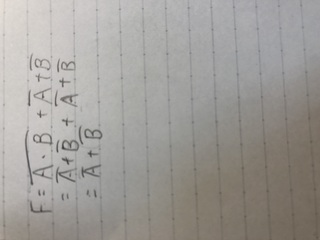 F = \overline{A · B} + \overline{A} + \overline{B}
= \overline{A} + \overline{B} + \overline{A} + \overline{B}
= \overline{A} + \overline{B}